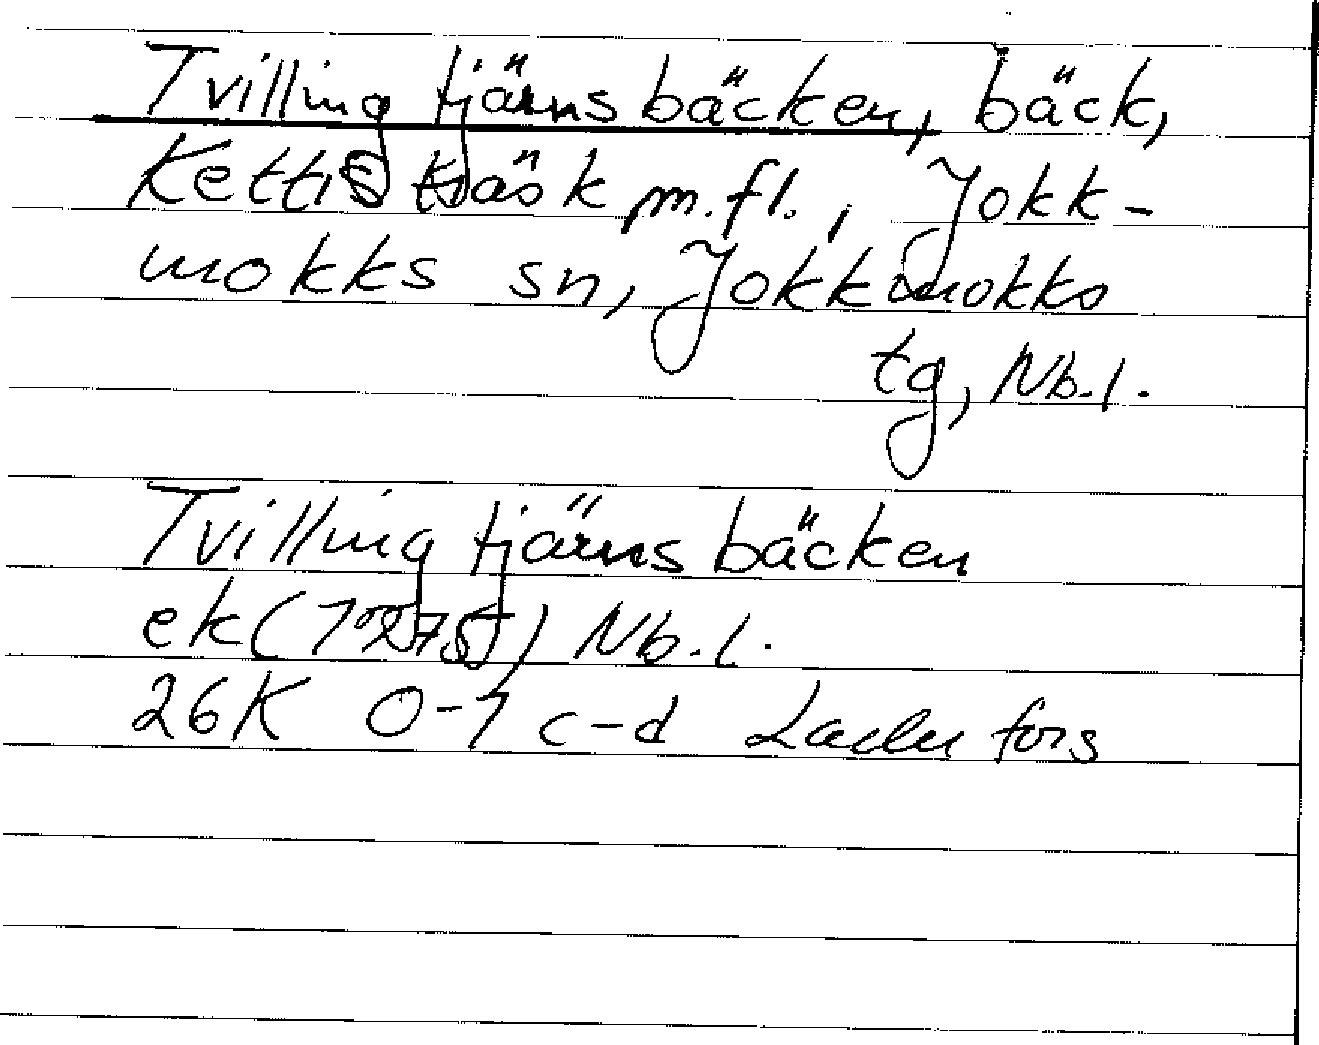 Tvillingtjärnsbäcken, bäck,
Kettisträsk m.fl., Jokk-
mokks sn, Jokkmokks
tg, Nb.l.
Tvillingtjärnsbäcken
ek( ) Nb.l.
26K 0-1 c-d fors